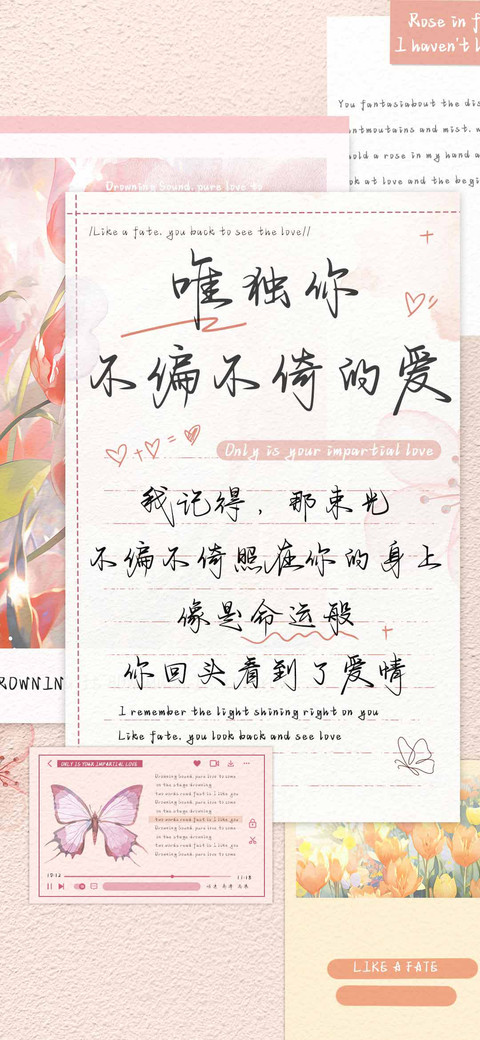 Rose in f
I haven't l
You fantasiabout the dis
ntmoutains and mist. w
hold a rose in my hand a
ok at love and the begi
Drowning Sound. pure love to
/Like a fate. you back to see the love//
唯独你
不偏不倚的爱
Only is your impartial love
我记得，那束光
不偏不倚照在你的身上
像是命运般
你回头看到了爱情
I remember the light shining right on you
Like fate. you look back and see love
ROWNIN
ONLY IS YOUR IMPARTIAL LOVE
Drowning Sound. pure live to some
two words read fast is I like you
Drowning Sound. pure live to some
two words read fast is I like you
Drowning Sound. pure live to some
two words read fast is I like you
Drowning Sound. pure live to some
10:12
11:18
LIKE A FATE